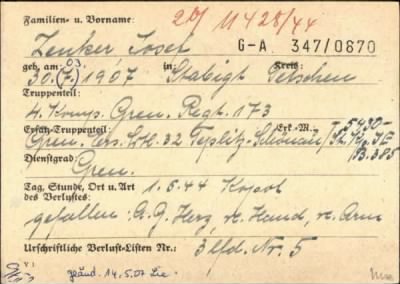 Familien- u. Vorname: 20/ 11428/44
Zenker Josef G-A 347/0870
geb. am: 03. in: Kreis:
30.(7.)1907 Stabigt Tetschen
Truppenteil:
4. Komp. Gren. Regt. 173
Ersatz-Truppenteil: Erk.-M.: -5430-
Gren. Ers. Btl. 32 Teplitz-Schönau
B. 385
Dienstgrad:
Gren.
Tag, Stunde, Ort u. Art 1.6.44
des Verlustes:
gefallen: A.G. Herz, re. Hand, re. Arm
Urschriftliche Verlust-Listen Nr.: 3 lfd. Nr. 5
geänd. 14.5.07